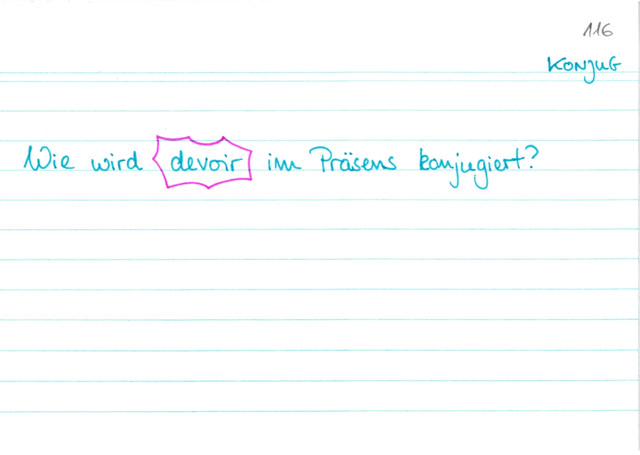 116
KONJUG
Wie wird devoir im Präsens konjugiert?